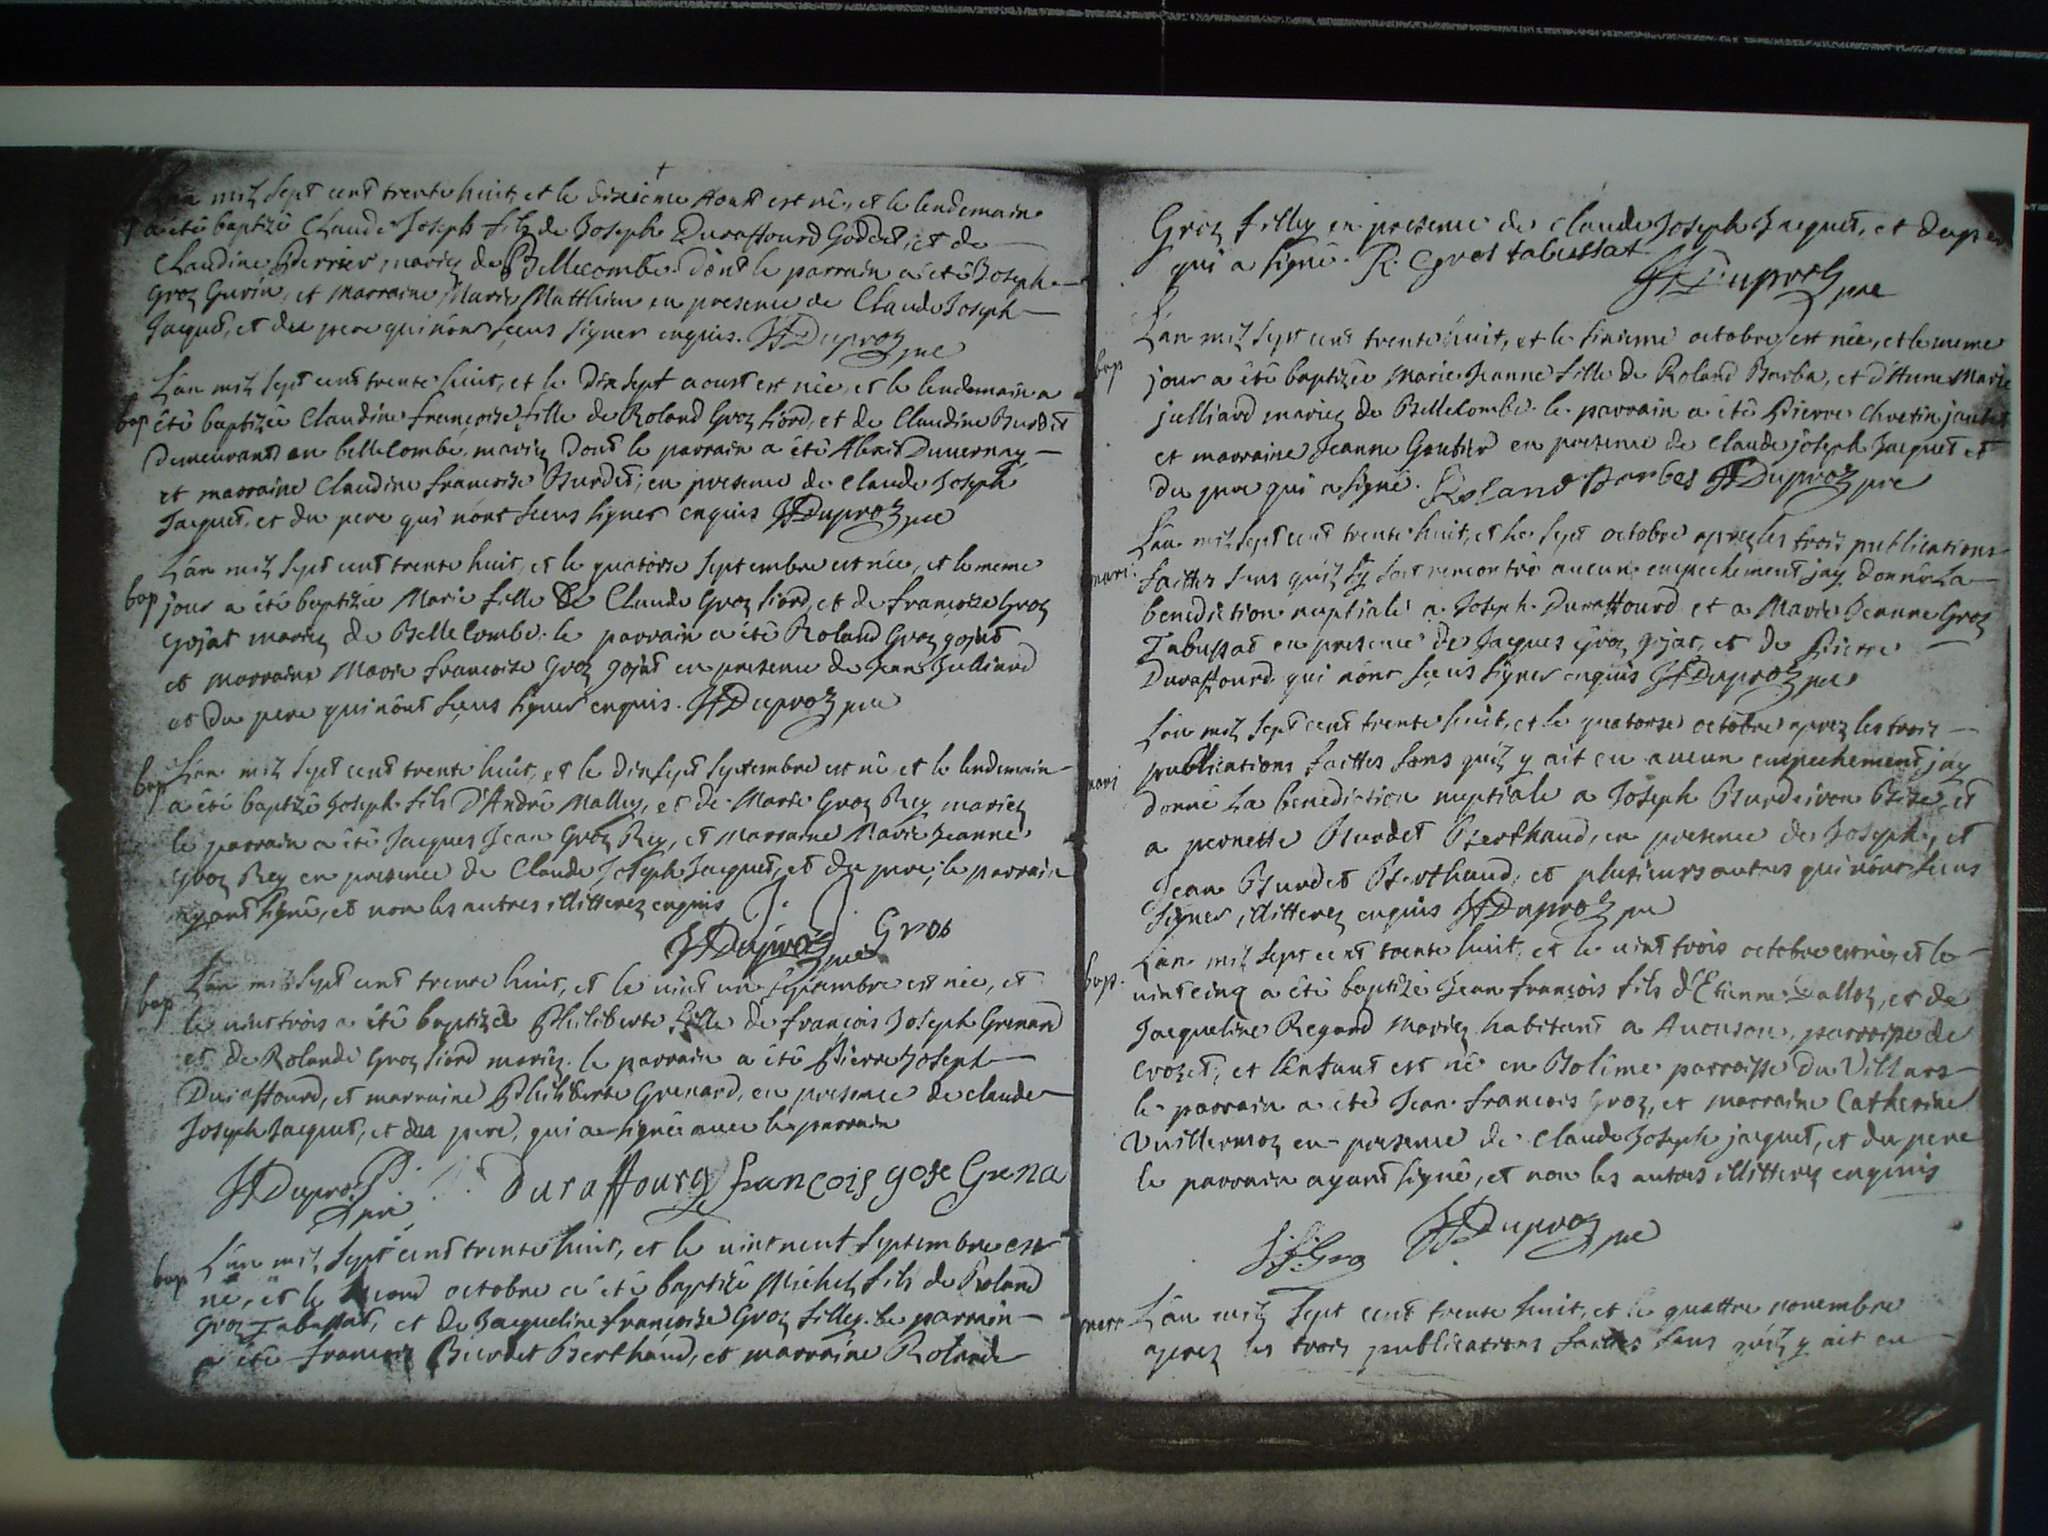 L'an mil sept cent trente huit, et le dixieme Aout est né, et le lendemain
a été baptizé Claude Joseph fils de Joseph Duraffourd Goddet, et de
Claudine Perrier, mariez de Bellecombe. dont le parrain a été Joseph
Groz Gurin, et marraine Marie Matthieu en presence de Claude Joseph
Jacquet, et du pere qui n'ont sceus signer enquis. JF Duproz pre
L'an mil sept cent trente huit, et le dix sept aoust est née, et le lendemain a
bap été baptizée Claudine françoise fille de Roland Groz fiord, et de Claudine Burdet
demeurants en bellecombe, mariez dont le parrain a été Alexis Duvernay
et marraine Claudine francoise Burdet; en presence de claude Joseph
Jacquet, et du pere qui n'ont sceus signer enquis JF Duproz pre
L'an mil sept cent trente huit, et le quatorse septembre est née, et le meme
bap jour a été baptizée Marie fille de Claude Groz fiord, et de francoise Groz
gojat mariez de Bellecombe. le parrain a été Roland Groz gojat
et marraine Marie francoise Groz gojat en presence de Jean Julliard
et du pere qui n'ont sceus signer enquis. JF Duproz pre
bap L'an mil sept cent trente huit, et le dix sept septembre est né et le lendemain
a été baptizé Joseph fils d'André Malley, et de Marie Groz Rey mariez
le parrain a été Jacques Jean Groz Rey, et marraine Marie Jeanne
Groz Rey en presence de Claude Joseph Jacquet, et du pere, le parrain
ayant signé, et non les autres illitterez enquis
JF Duproz pre J. J. Gros
bap L'an mil sept cent trente huit, et le vint un septembre est née, et
le vint trois a été baptizée Philiberte fille de francois Joseph Grenard
et de Rolande Groz fiord mariez. le parrain a été Pierre Joseph
Duraffourd, et marraine Philiberte Grenard, en presence de claude
Joseph Jacquet, et du pere, qui a signé avec le parrain
JF Duproz pre P. J. Duraffourg francois gose Grena
bap L'an mil sept cent trente huit, et le vint neuf septembre est
né, et le second octobre a été baptizé Michel fils de Roland
Groz Tabussat, et de Jacqueline francoise Groz filley. le parrain
a été francois Burdet Berthaud, et marraine Rolande
Groz filley en presence de claude Joseph Jacquet, et du pere
qui a signé. R. Gros tabussat JF Duproz pre
L'an mil sept cent trente huit, et le sixieme octobre est née, et le meme
bap jour a été baptizée Marie Jeanne fille de Roland Barba, et d'Anne Marie
julliard mariez de Bellecombe. le parrain a été Pierre Chretin
et marraine Jeanne Gautier en presence de claude joseph Jacquet et
du pere qui a signé. Roland Barbas JF Duproz pre
L'an mil sept cent trente huit, et le sept octobre aprez les trois publications
mari. faittes sans qu'il s'y soit rencontré aucun empechement jay donné la
benediction nuptiale a Joseph Duraffourd et a Marie Jeanne Groz
Tabussat en presence de Jacques Groz gojat, et de Pierre
Duraffourd qui n'ont sceus signer enquis JF Duproz pre
L'an mil sept cent trente huit, et le quatorse octobre aprez les trois
mari publications faittes sans qu'il y ait eu aucun empechement jay
donné la benediction nuptiale a Joseph et
a pernette Burdet Berthaud, en presence de Joseph, et
Jean Burdet Berthaud, et plusieurs autres qui n'ont sceus
signer, illitterez enquis JF Duproz pre
L'an mil sept cent trente huit, et le vint trois octobre est né, et le
bap. vint cinq a été baptizé Jean françois fils d'Etienne Dalloz, et de
Jacqueline Regard mariez habitant a Avonson, parroisse de
Crozet, et l'enfant est né en Bolime parroisse du Villars
le parrain a été Jean francois Groz, et marraine Catherine
Vuillermoz en presence de Claude Joseph jacquet, et du pere
le parrain ayant signé, et non les autres illitterez enquis
J. f. Gro JF Duproz pre
mari L'an mil sept cent trente huit, et le quattre novembre
aprez les trois publications faittes sans qu'il y ait eu